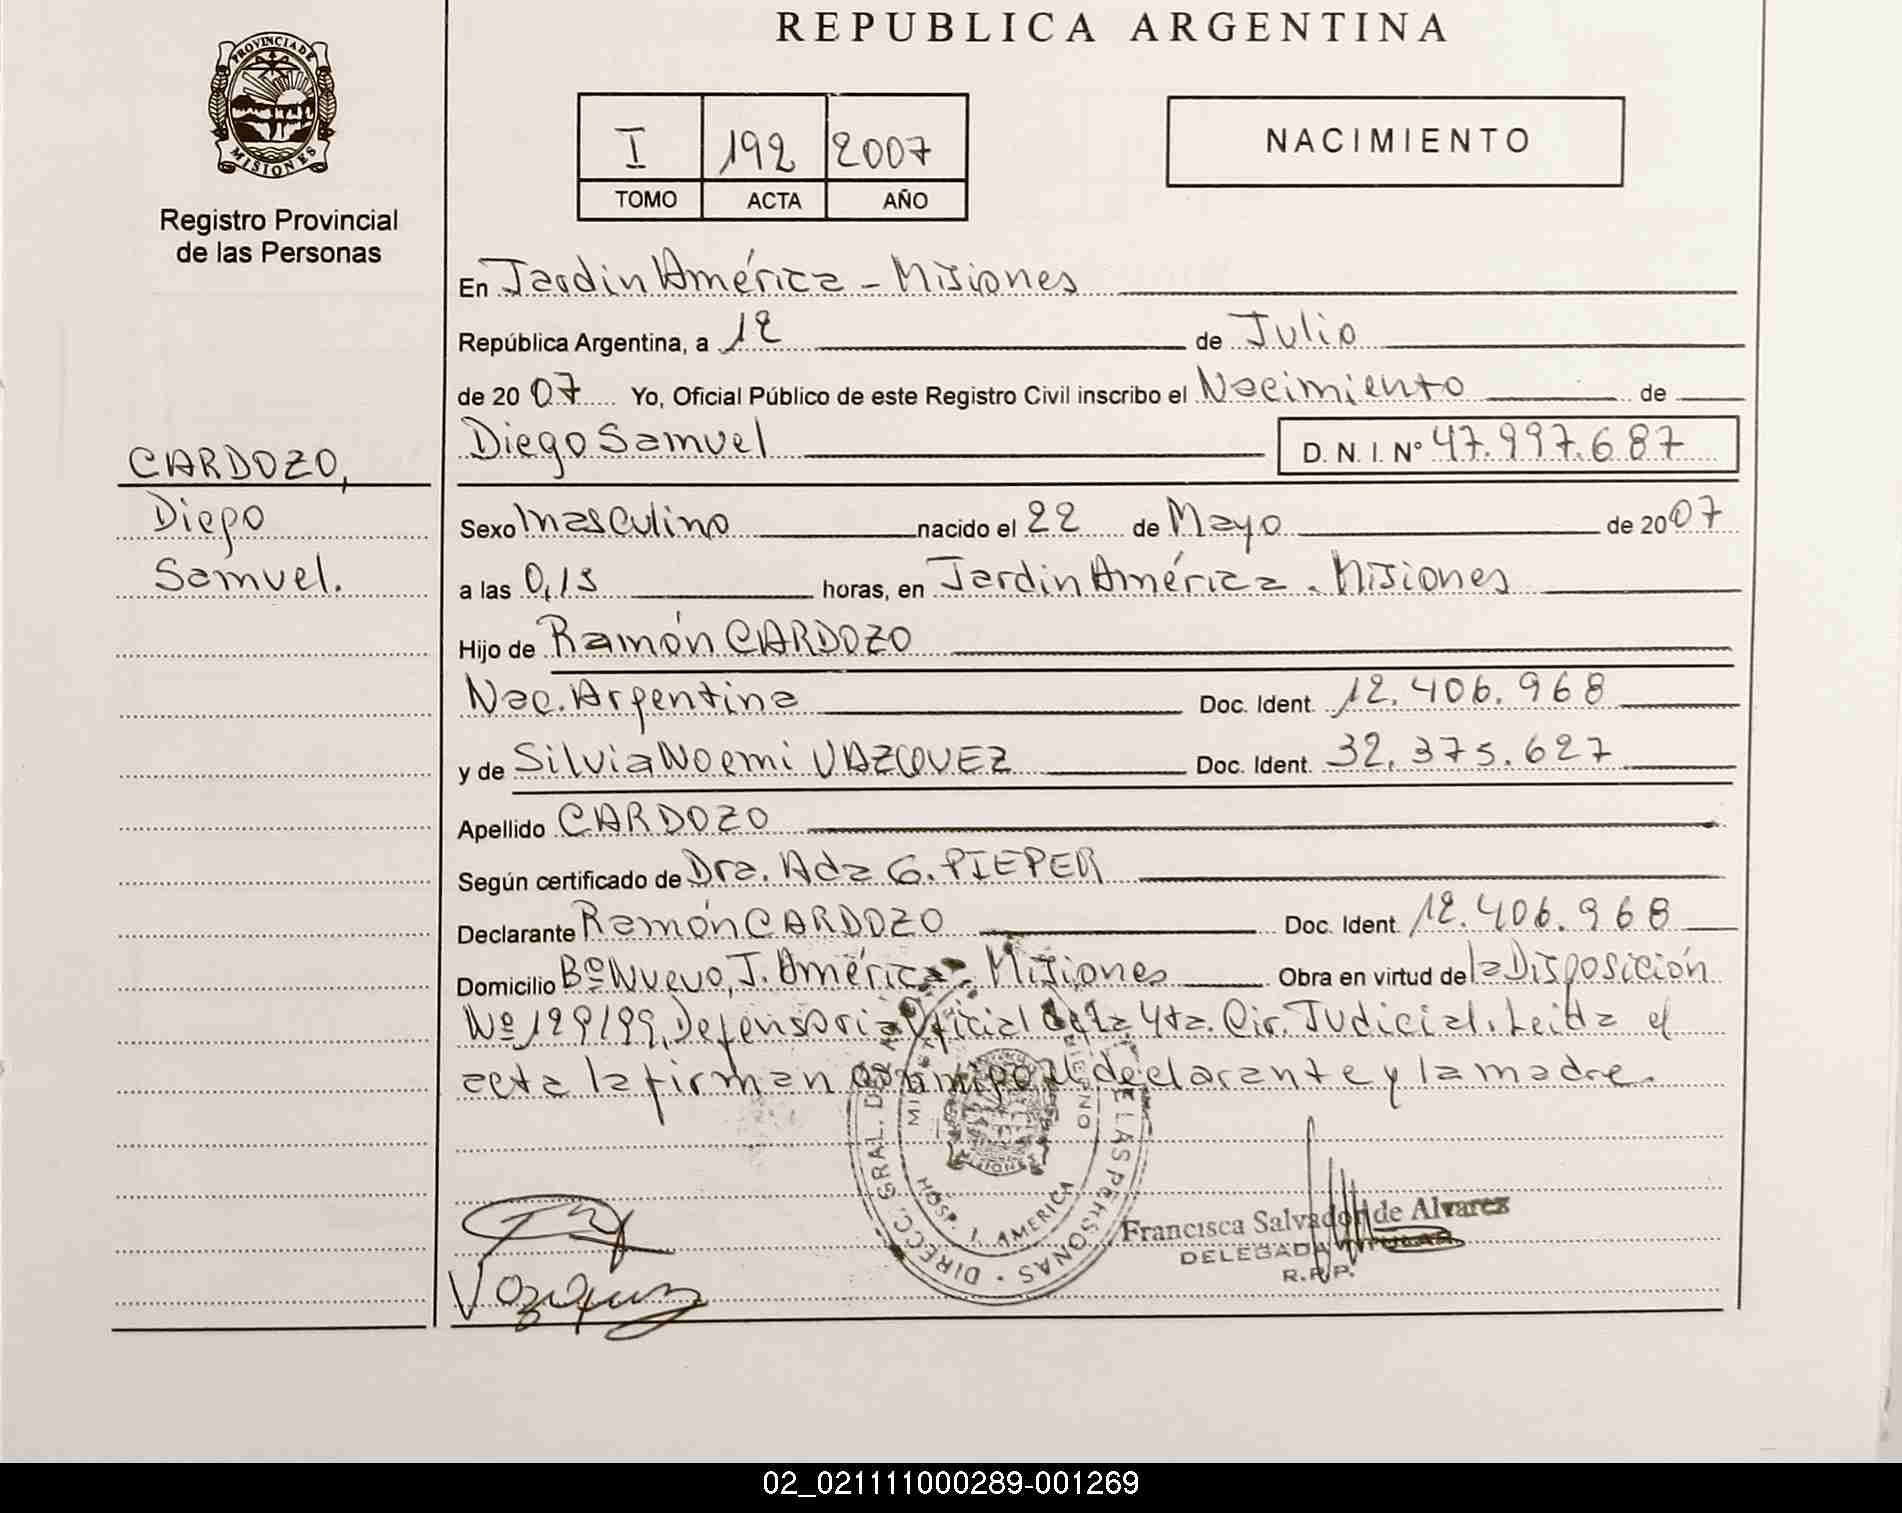 REPUBLICA ARGENTINA
PROVINCIA DE
MISIONES
Registro Provincial
de las Personas
I 192 2007
TOMO ACTA AÑO
NACIMIENTO
En Jardin América - Misiones
República Argentina, a 12 de Julio
de 2007 Yo, Oficial Público de este Registro Civil inscribo el Nacimiento de
Diego Samuel D. N. I. Nº 47.997.687
CARDOZO,
Diego
Samuel.
Sexo masculino nacido el 22 de Mayo de 2007
a las 0,15 horas, en Jardin América. Misiones
Hijo de Ramón CARDOZO
Nac. Argentina Doc. Ident. 12.406.968
y de Silvia Noemi VAZQUEZ Doc. Ident. 32.375.627
Apellido CARDOZO
Según certificado de Dra. Ada G. PIEPER
Declarante Ramón CARDOZO Doc. Ident. 12.406.968
Domicilio Bº Nuevo, J. América - Misiones Obra en virtud de la Disposición
Nº 129/99, Defensoria Oficial de la 4ta. Cir. Judicial. Leida el
acta la firman conmigo el declarante y la madre.
DIRECC. GRAL. DE LAS PERSONAS
HOSP. J. AMERICA
MISIONES
Francisca Salvador de Alvarez
DELEGADA TITULAR
R.P.P.
Vazquez
02_021111000289-001269